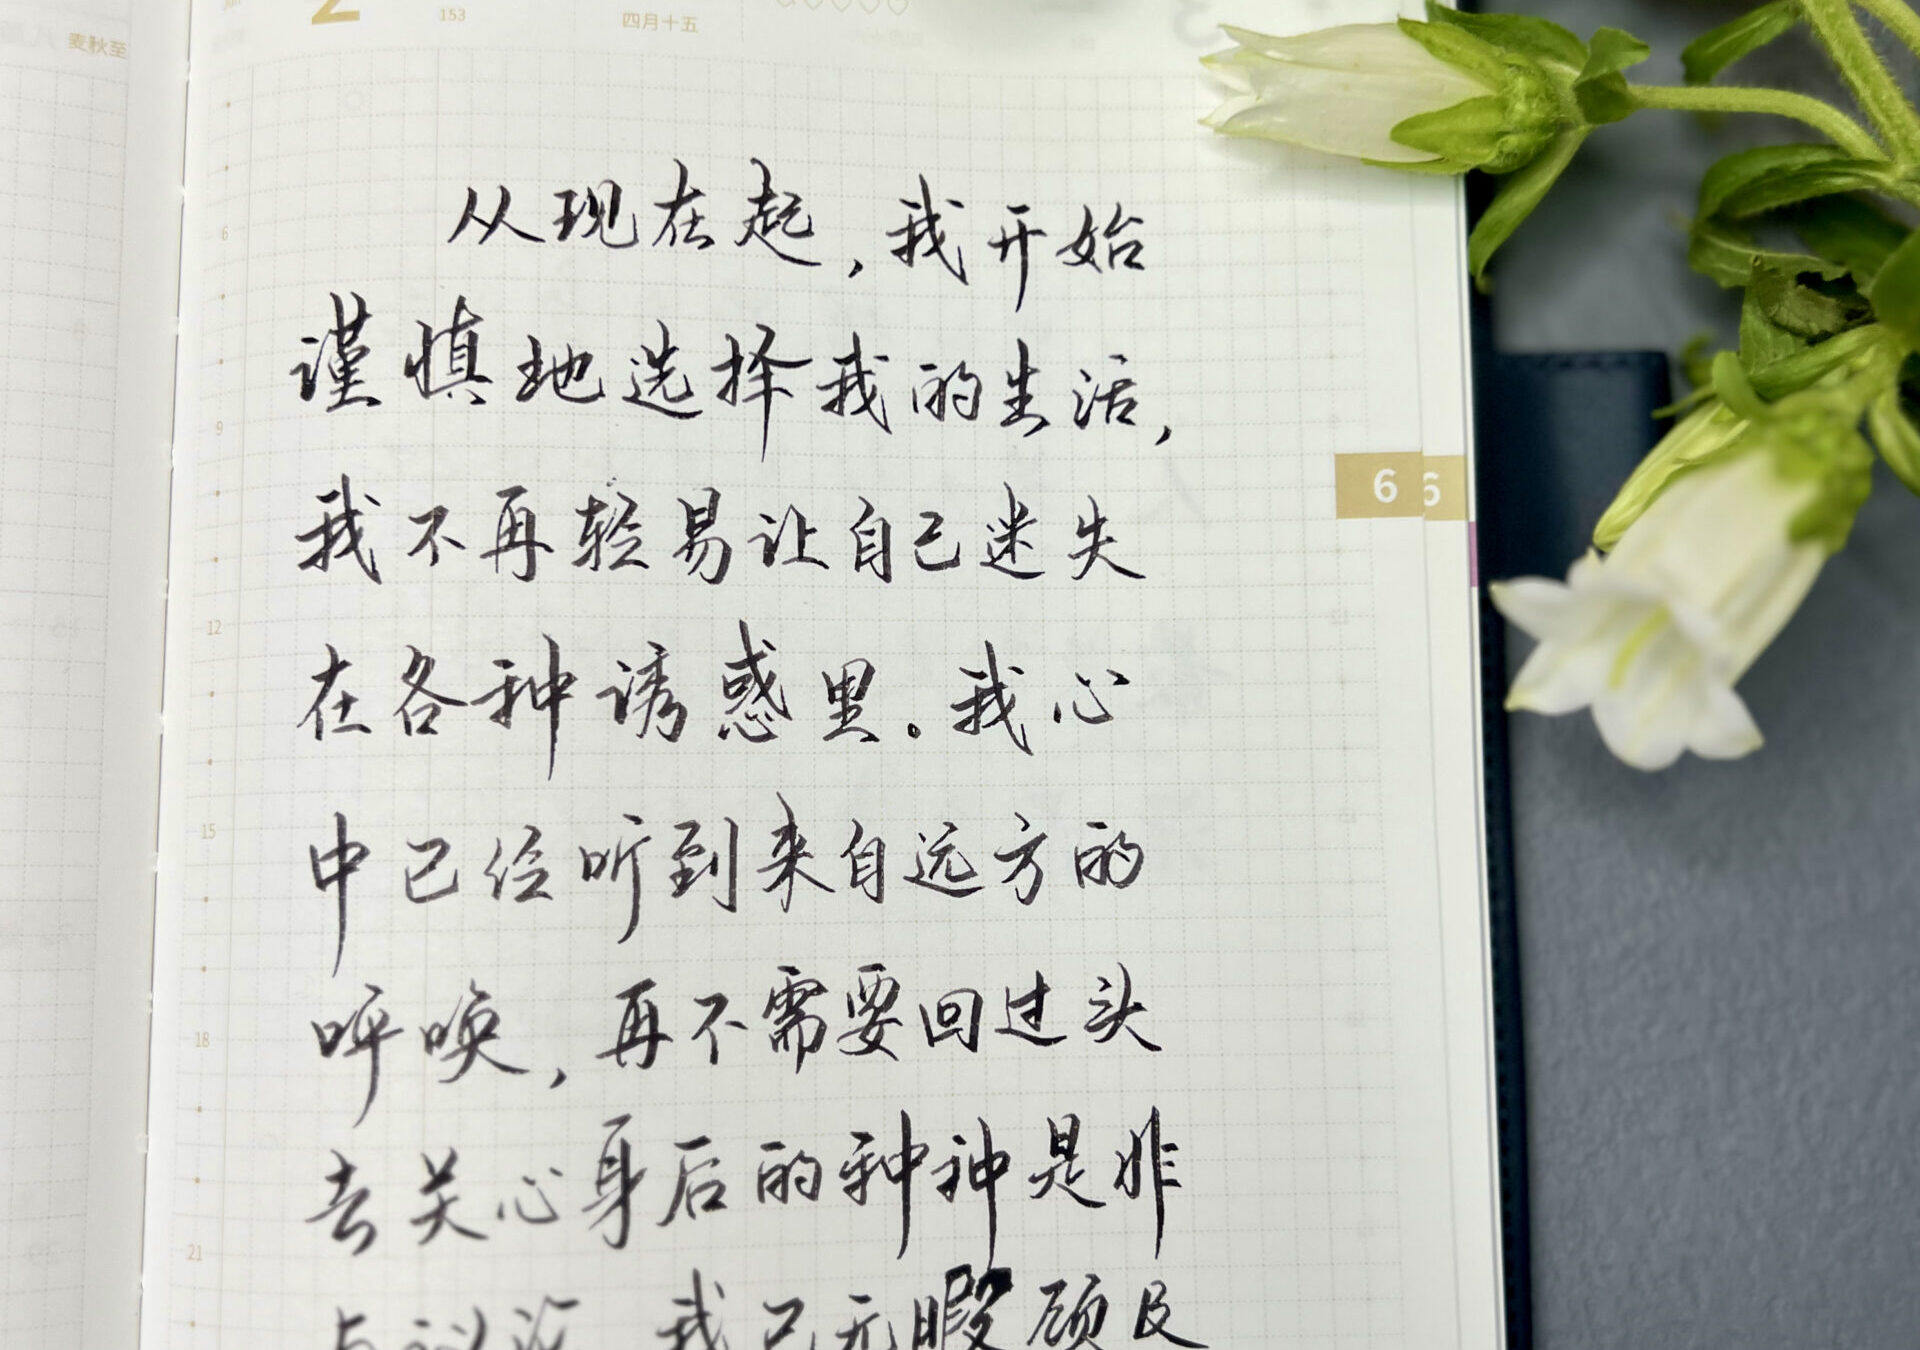 麦秋至
2
153
四月十五
从现在起，我开始
谨慎地选择我的生活，
我不再轻易让自己迷失
在各种诱惑里。我心
中已经听到来自远方的
呼唤，再不需要回过头
去关心身后的种种是非
与议论 我已无暇顾及
6
9
12
15
18
21
6
6